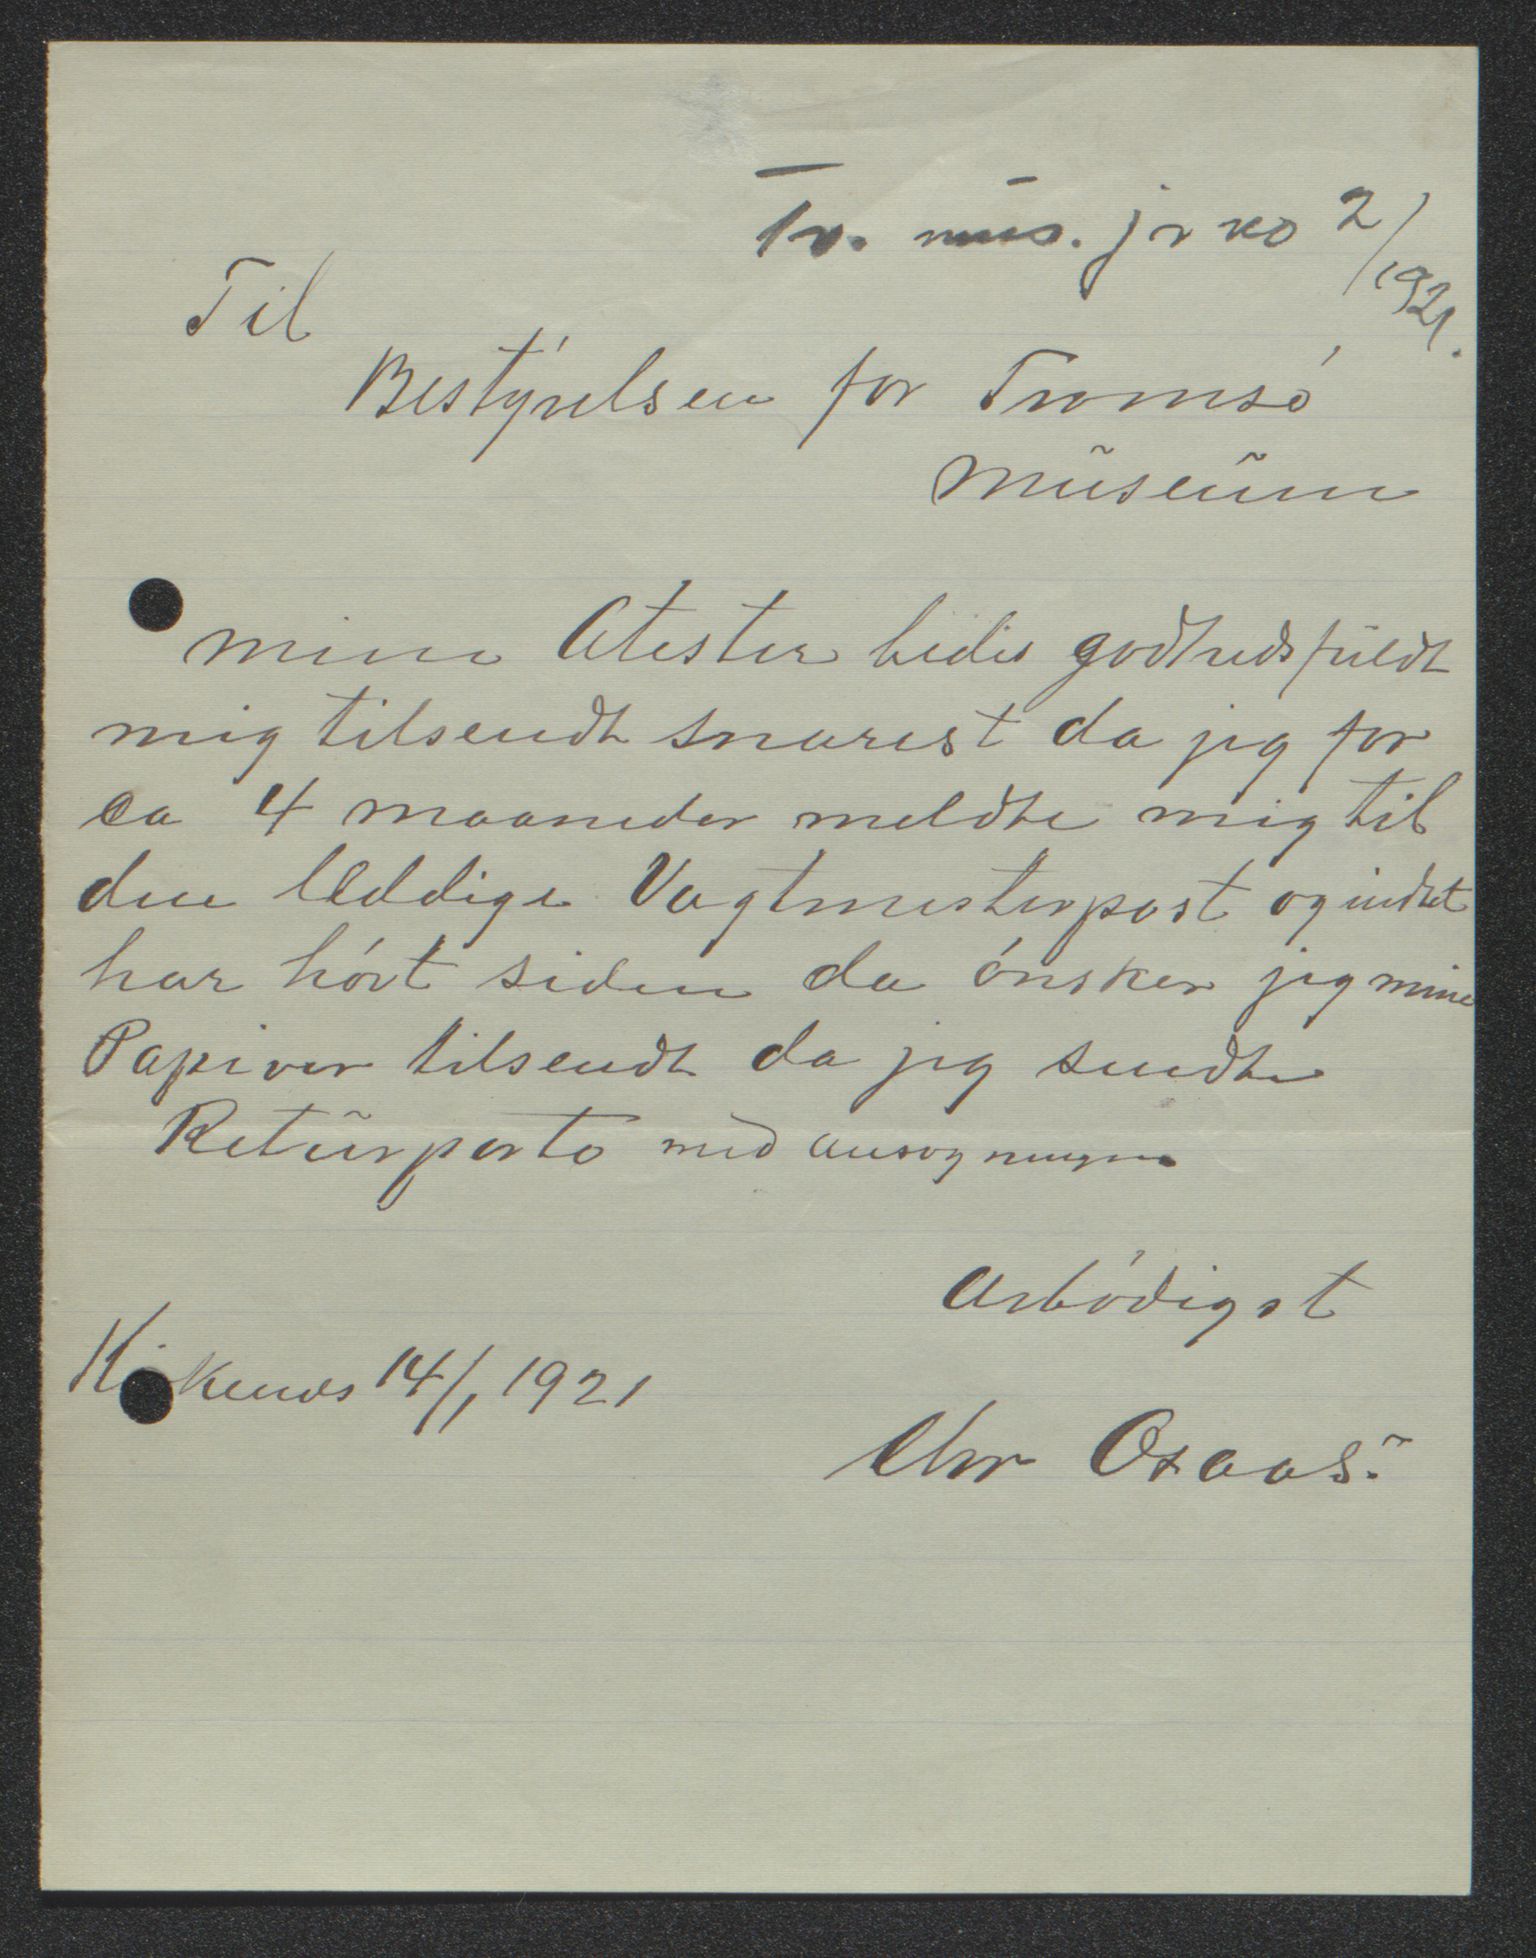 Tr. mus. jr no 2/1921.
Til
Bestyrelsen for Tromsó
Museum
mine Atester bedes godhedsfuldt
mig tilsendt snarest da jeg for
ca 4 maaneder meldte mig til
den leddige Vagtmesterpost og indtet
har hórt siden da ónsker jeg mine
Papirer tilsendt da jeg sendte
Returporto med ansogningen
Arbódigst
Kirkenes 14/1 1921
Chr Osaas.